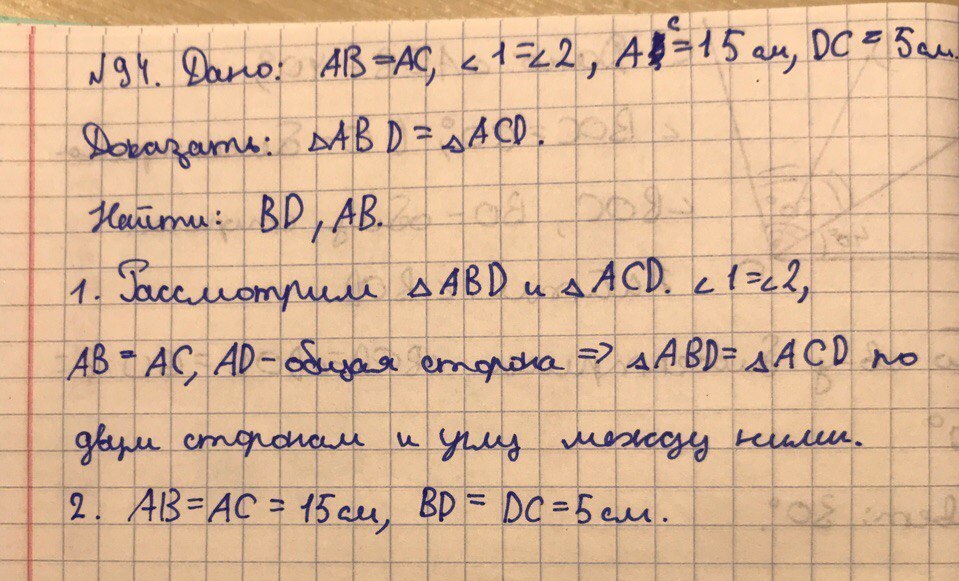 №94. Дано: AB=AC, ∠1=∠2, AC=15см, DC=5см.
Доказать: △ABD=△ACD.
Найти: BD, AB.
1. Рассмотрим △ABD и △ACD. ∠1=∠2,
AB=AC, AD-общая сторона => △ABD=△ACD по
двум сторонам и углу между ними.
2. AB=AC=15см, BD=DC=5см.